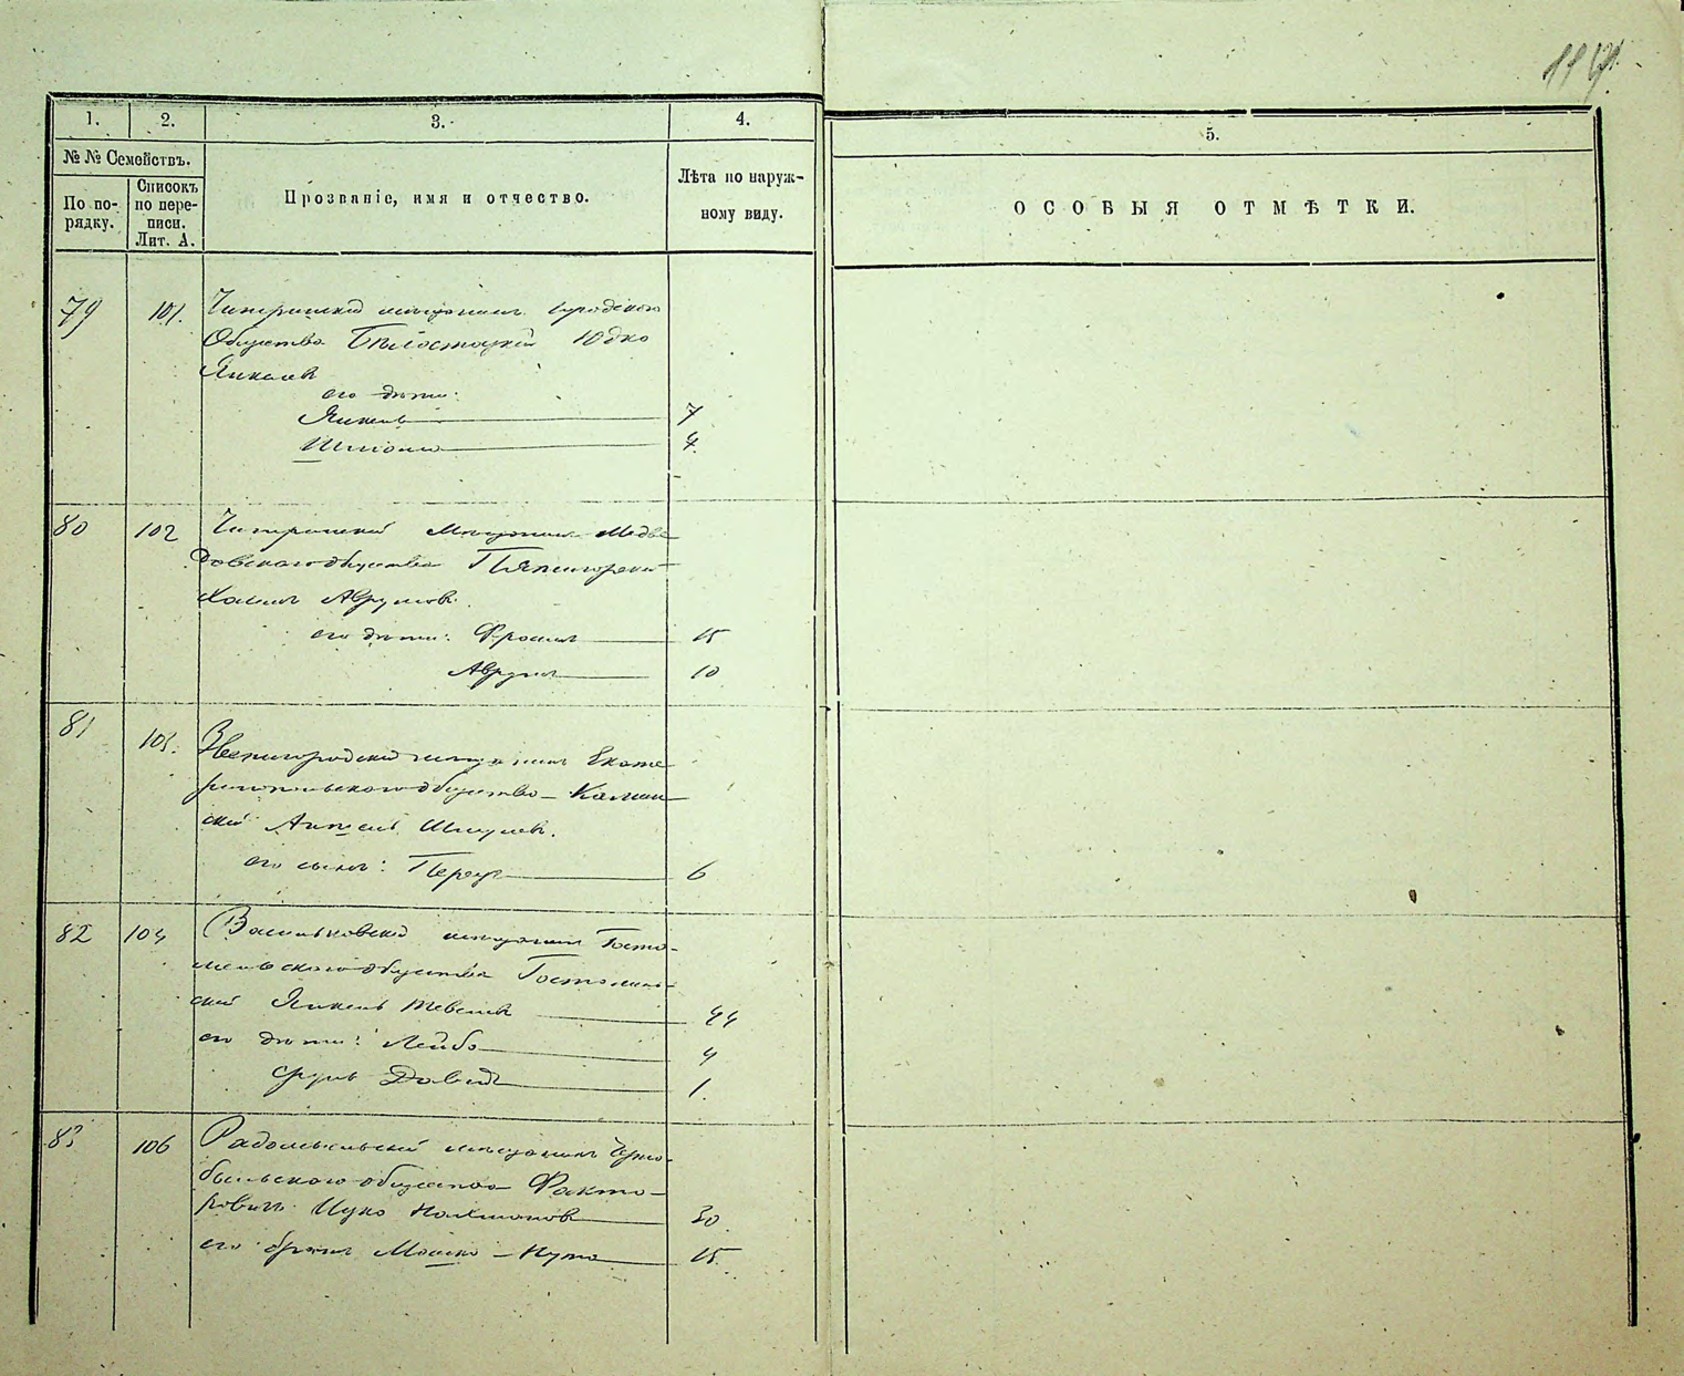 1.
2.
3.
4.
5.
№ № Семействъ.
По по-
рядку.
Списокъ
по пере-
писи.
Лит. А.
Прозваніе, имя и отчество.
Лѣта по наруж-
ному виду.
ОСОБЫЯ ОТМѢТКИ.
79 101. Чигиринскій мѣщанинъ городского
Общества Бѣлостоцкій Юдко
Янкелев
его дѣти:
Янкель 7
Шліома 4
80 102 Чигиринскій Мѣщанинъ Медве
довского общества Пятигорскій
Хаимъ Аврумов.
его дѣти: Фроимъ 15
Аврумъ 10
81 103. Звенигородскій мѣщанинъ Екате
ринопольского общества
скій Шмулев.
его сынъ: Перецъ 6
82 104 Васильковскій мѣщанинъ Госто-
мельского общества Гостомель-
скій Янкель Тевелев 44
его дѣти: Лейба 4
Сруль Давидъ 1.
83 106 Радомысльскій мѣщанинъ Черно-
быльского общества Факто-
ровичъ Ицко Нахманов 30
его братъ Мошко-Нута 15